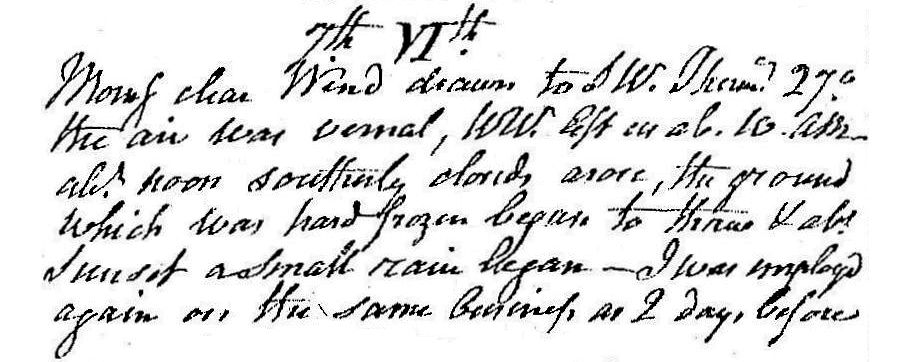 7th VIth
Morng clear Wind drawn to SW. Therm. 27°
the air was vernal, WW. left us ab. 10 am
abt. noon southerly clouds arose, the ground
which was hard frozen began to thaw & abt
Sunset a small rain began – I was employd
again on the same business as 2 days before